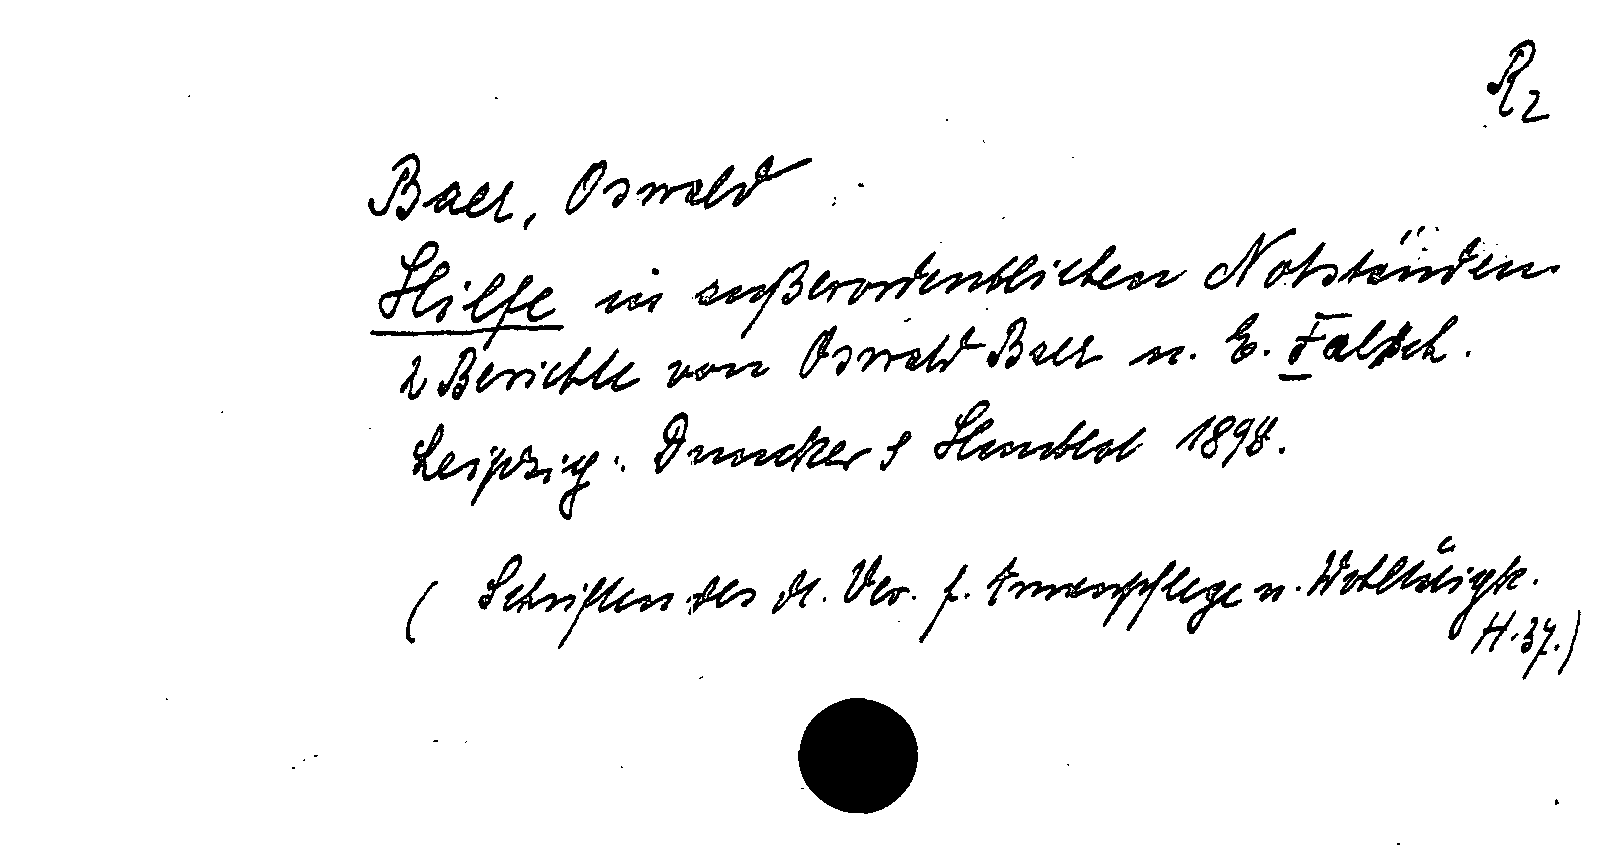 R2
Baer, Oswald
Hilfe in außerordentlichen Notständen.
2 Berichte von Oswald Baer u. E. Falsch.
Leipzig: Duncker & Humblot 1898.
(Schriften des dt. Ver. f. Armenpflege u. Wohltätigk.
H. 37.)